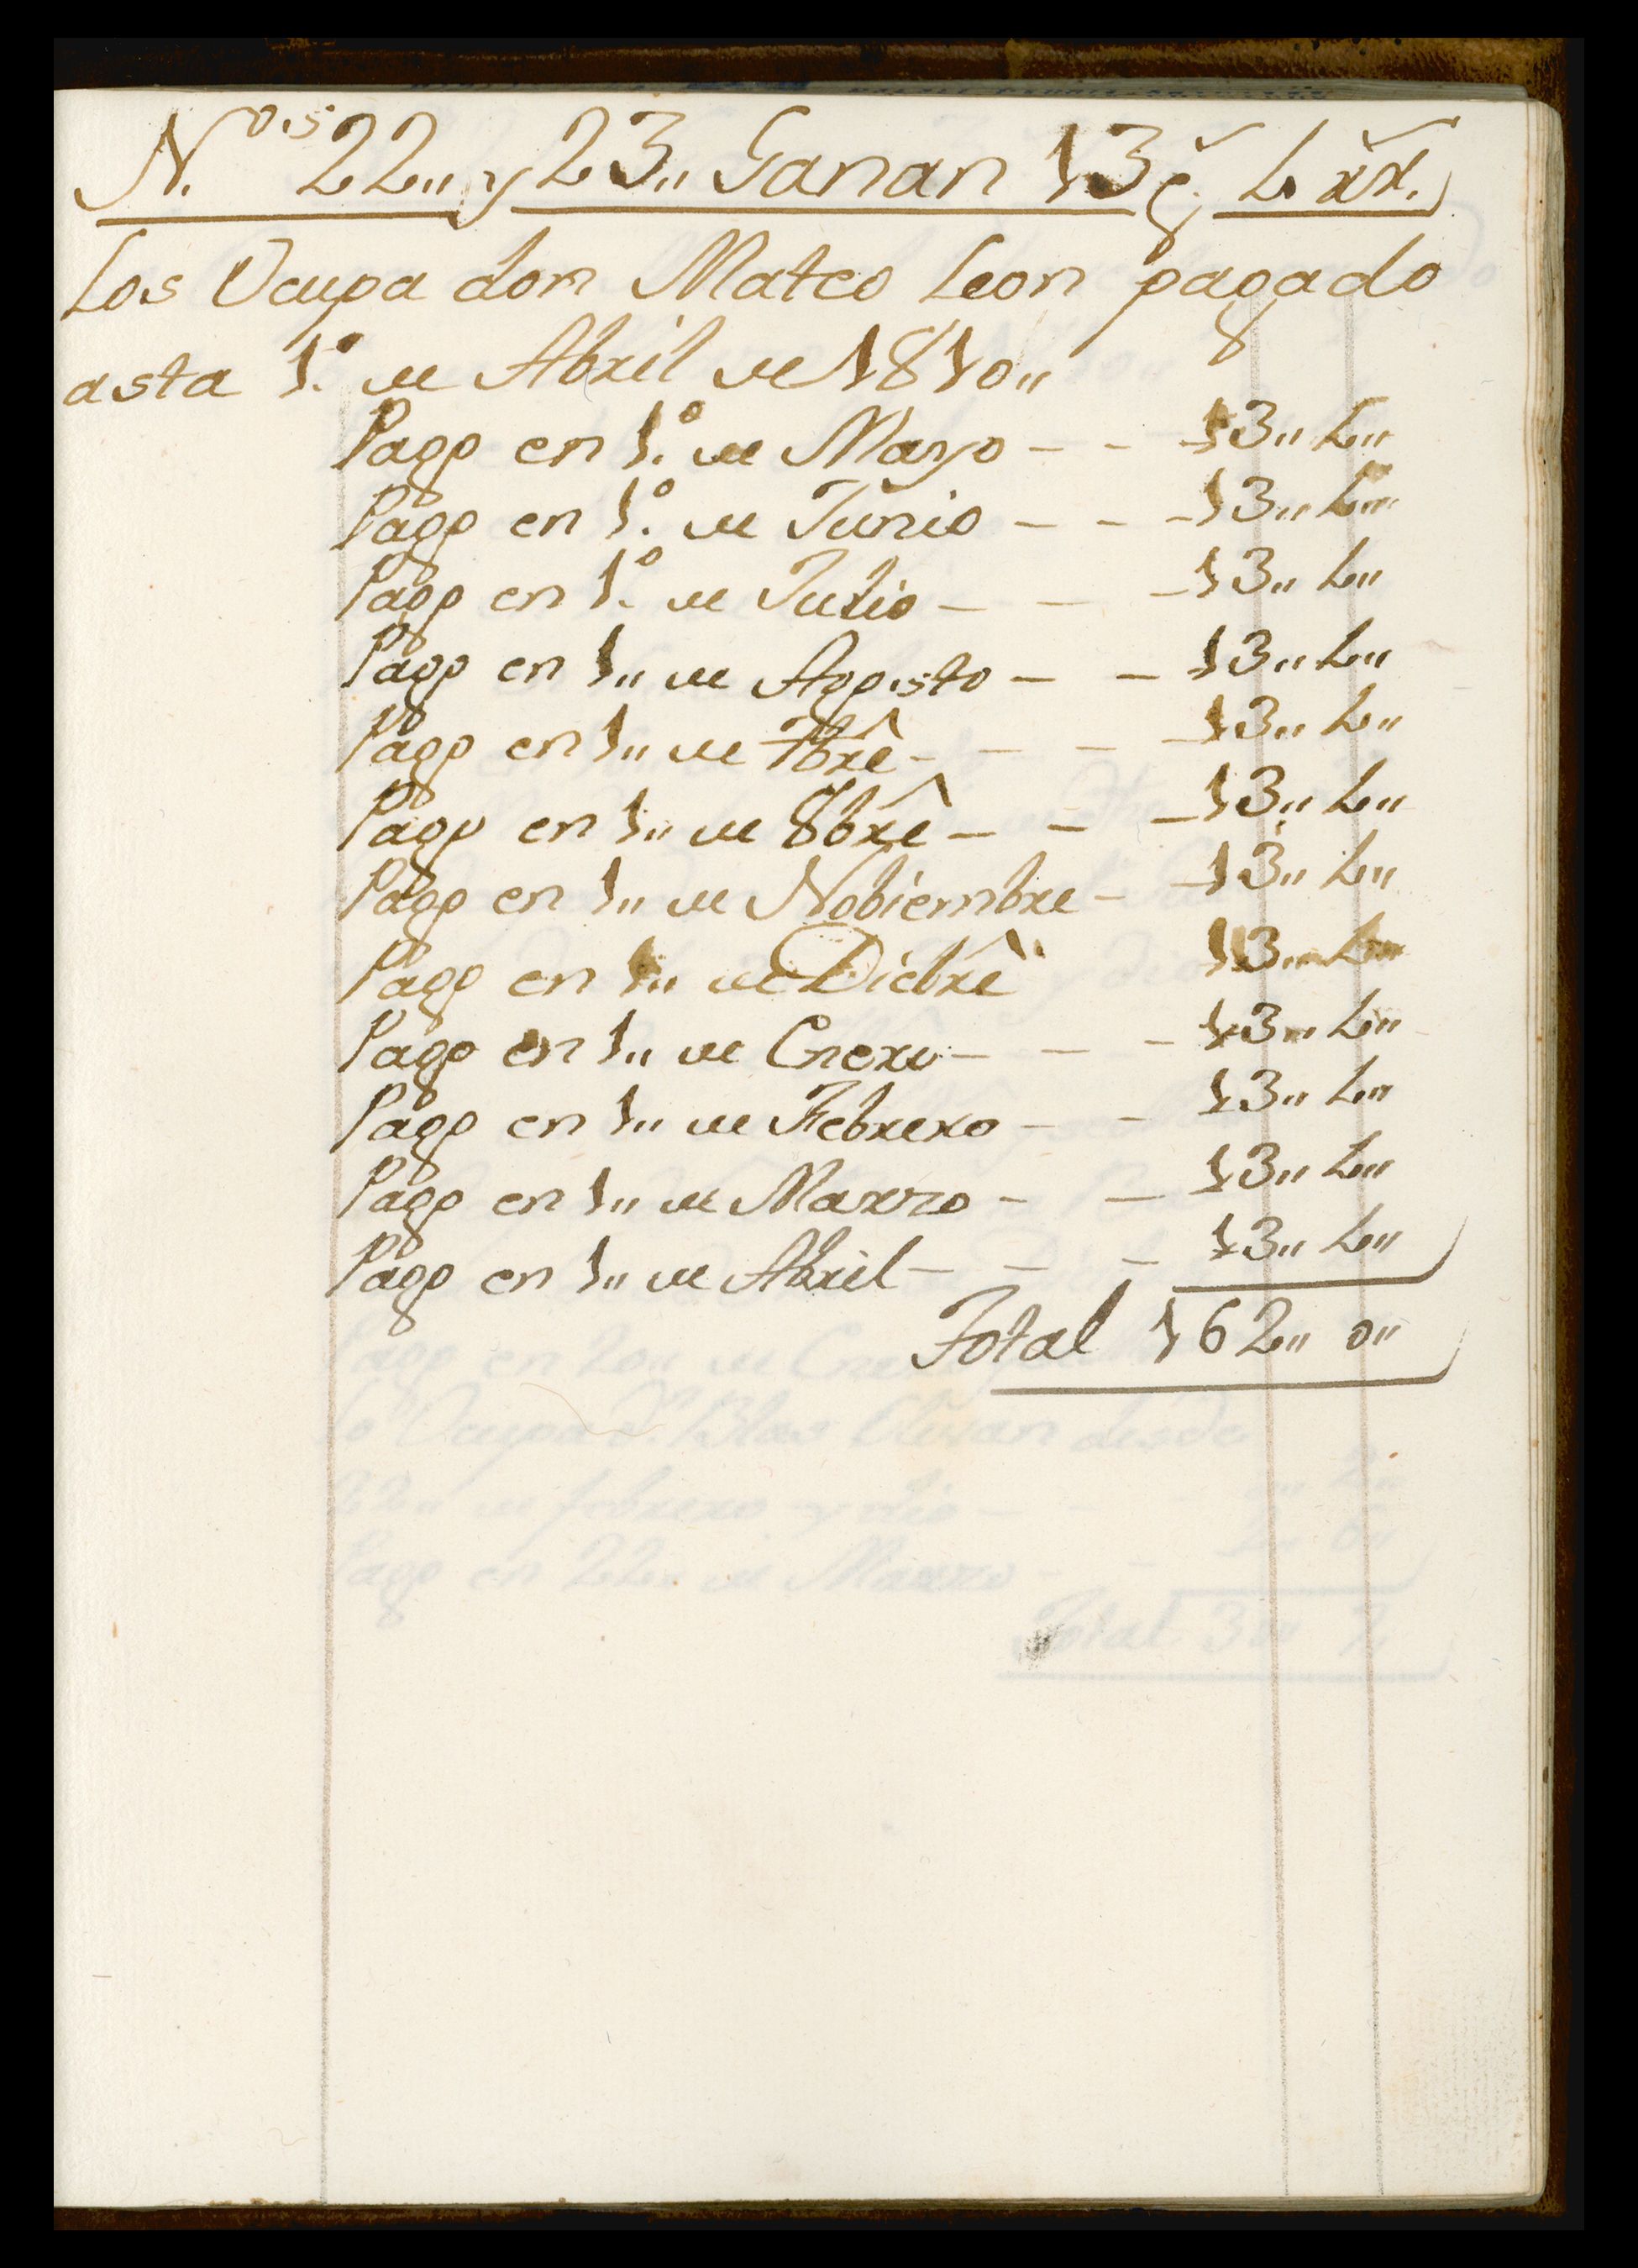 N.os 22,, y 23,, Ganan 13 p.s 4 rr.
Los Ocupa don Mateo Leon pagado
asta 1.º de Abril de 1810,,
Pago en 1.º de Mayo - - - 13,, 4,,
Pago en 1.º de Junio - - - 13,, 4,,
Pago en 1.º de Julio - - - 13,, 4,,
Pago en 1,, de Agosto - - 13,, 4,,
Pago en 1,, de 7brê - - - - 13,, 4,,
Pago en 1,, de 8brê - - - 13,, 4,,
Pago en 1,, de Nobiembre - - 13,, 4,,
Pago en 1,, de Dicbrê 13,, 4,,
Pago en 1,, de Enero - - - 13,, 4,,
Pago en 1,, de Febrero - - 13,, 4,,
Pago en 1,, de Marzo - - 13,, 4,,
Pago en 1,, de Abril - - - 13,, 4,,
Total 162,, 0,,